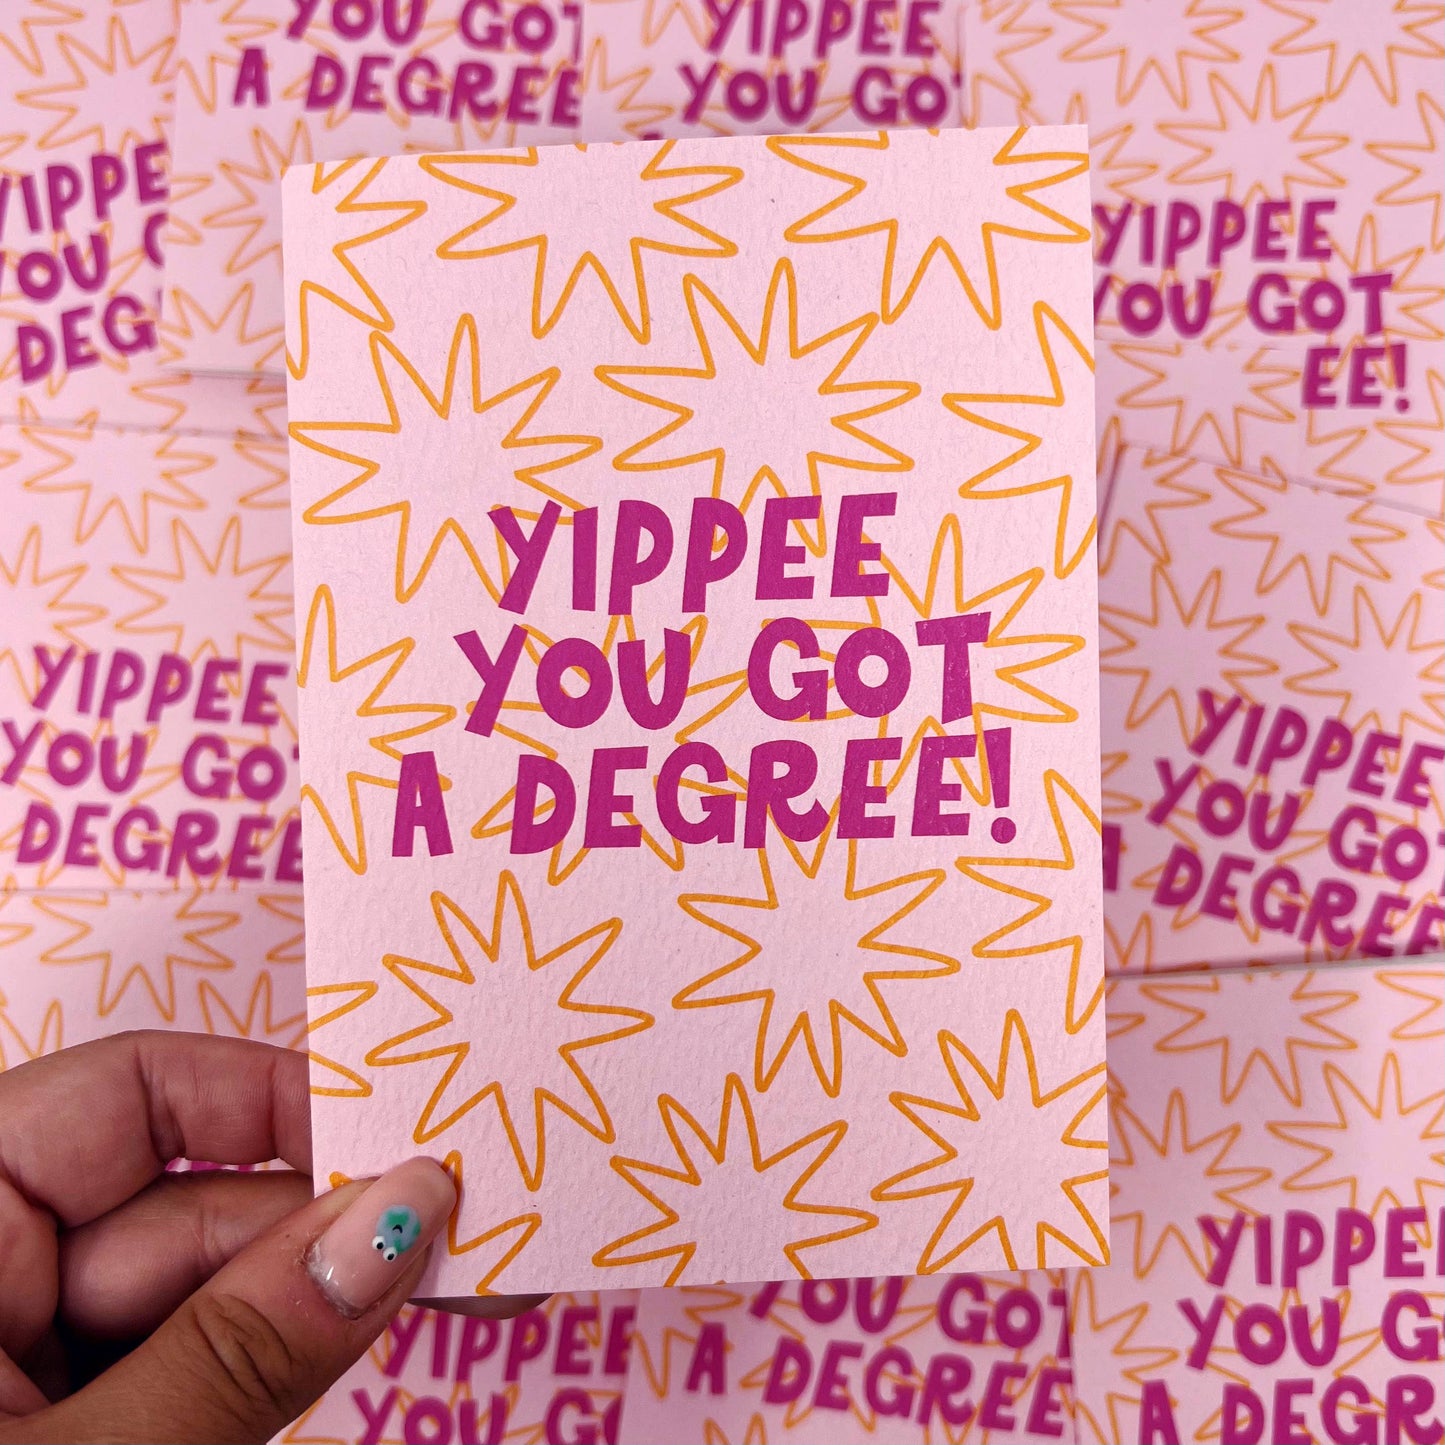 YIPPEE
YOU GOT
A DEGREE!
YOU GOT
A DEGREE
YIPPEE
YOU GO
YIPPE
YOU
DEG
YIPPEE
YOU GOT
EE!
YIPPEE
YOU GOT
DEGREE
YIPPEE
YOU GOT
A DEGREE
YIPPEE
YOU GO
YOU GOT
A DEGREE
YIPPEE
YOU G
A DEGRE